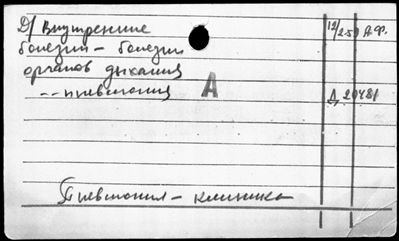 Д/ Внутренние
болезни – болезни
органов дыхания
-- пневмония
А
12/2-59 А.Ф.
Д 20481
Пневмония – клиника